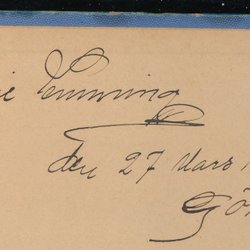 ie Emming
den 27 Mars 1
Gö